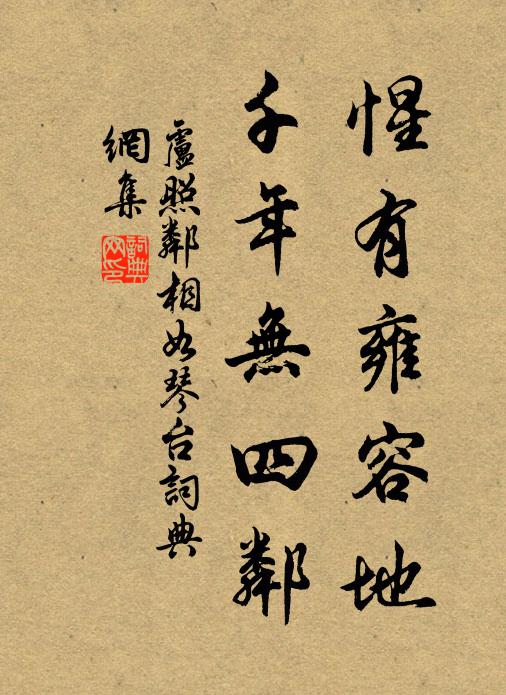 惺有雍容地
千年無四鄰
盧照鄰相如琴台詞典
網集
詞典
网印